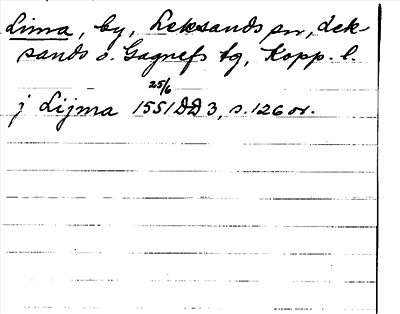 Lima, by, Leksands sn, Lek-
sands o. Gagnefs tg, Kopp. l.
25/6
j Lijma 1551 DD 3, s. 126 or.